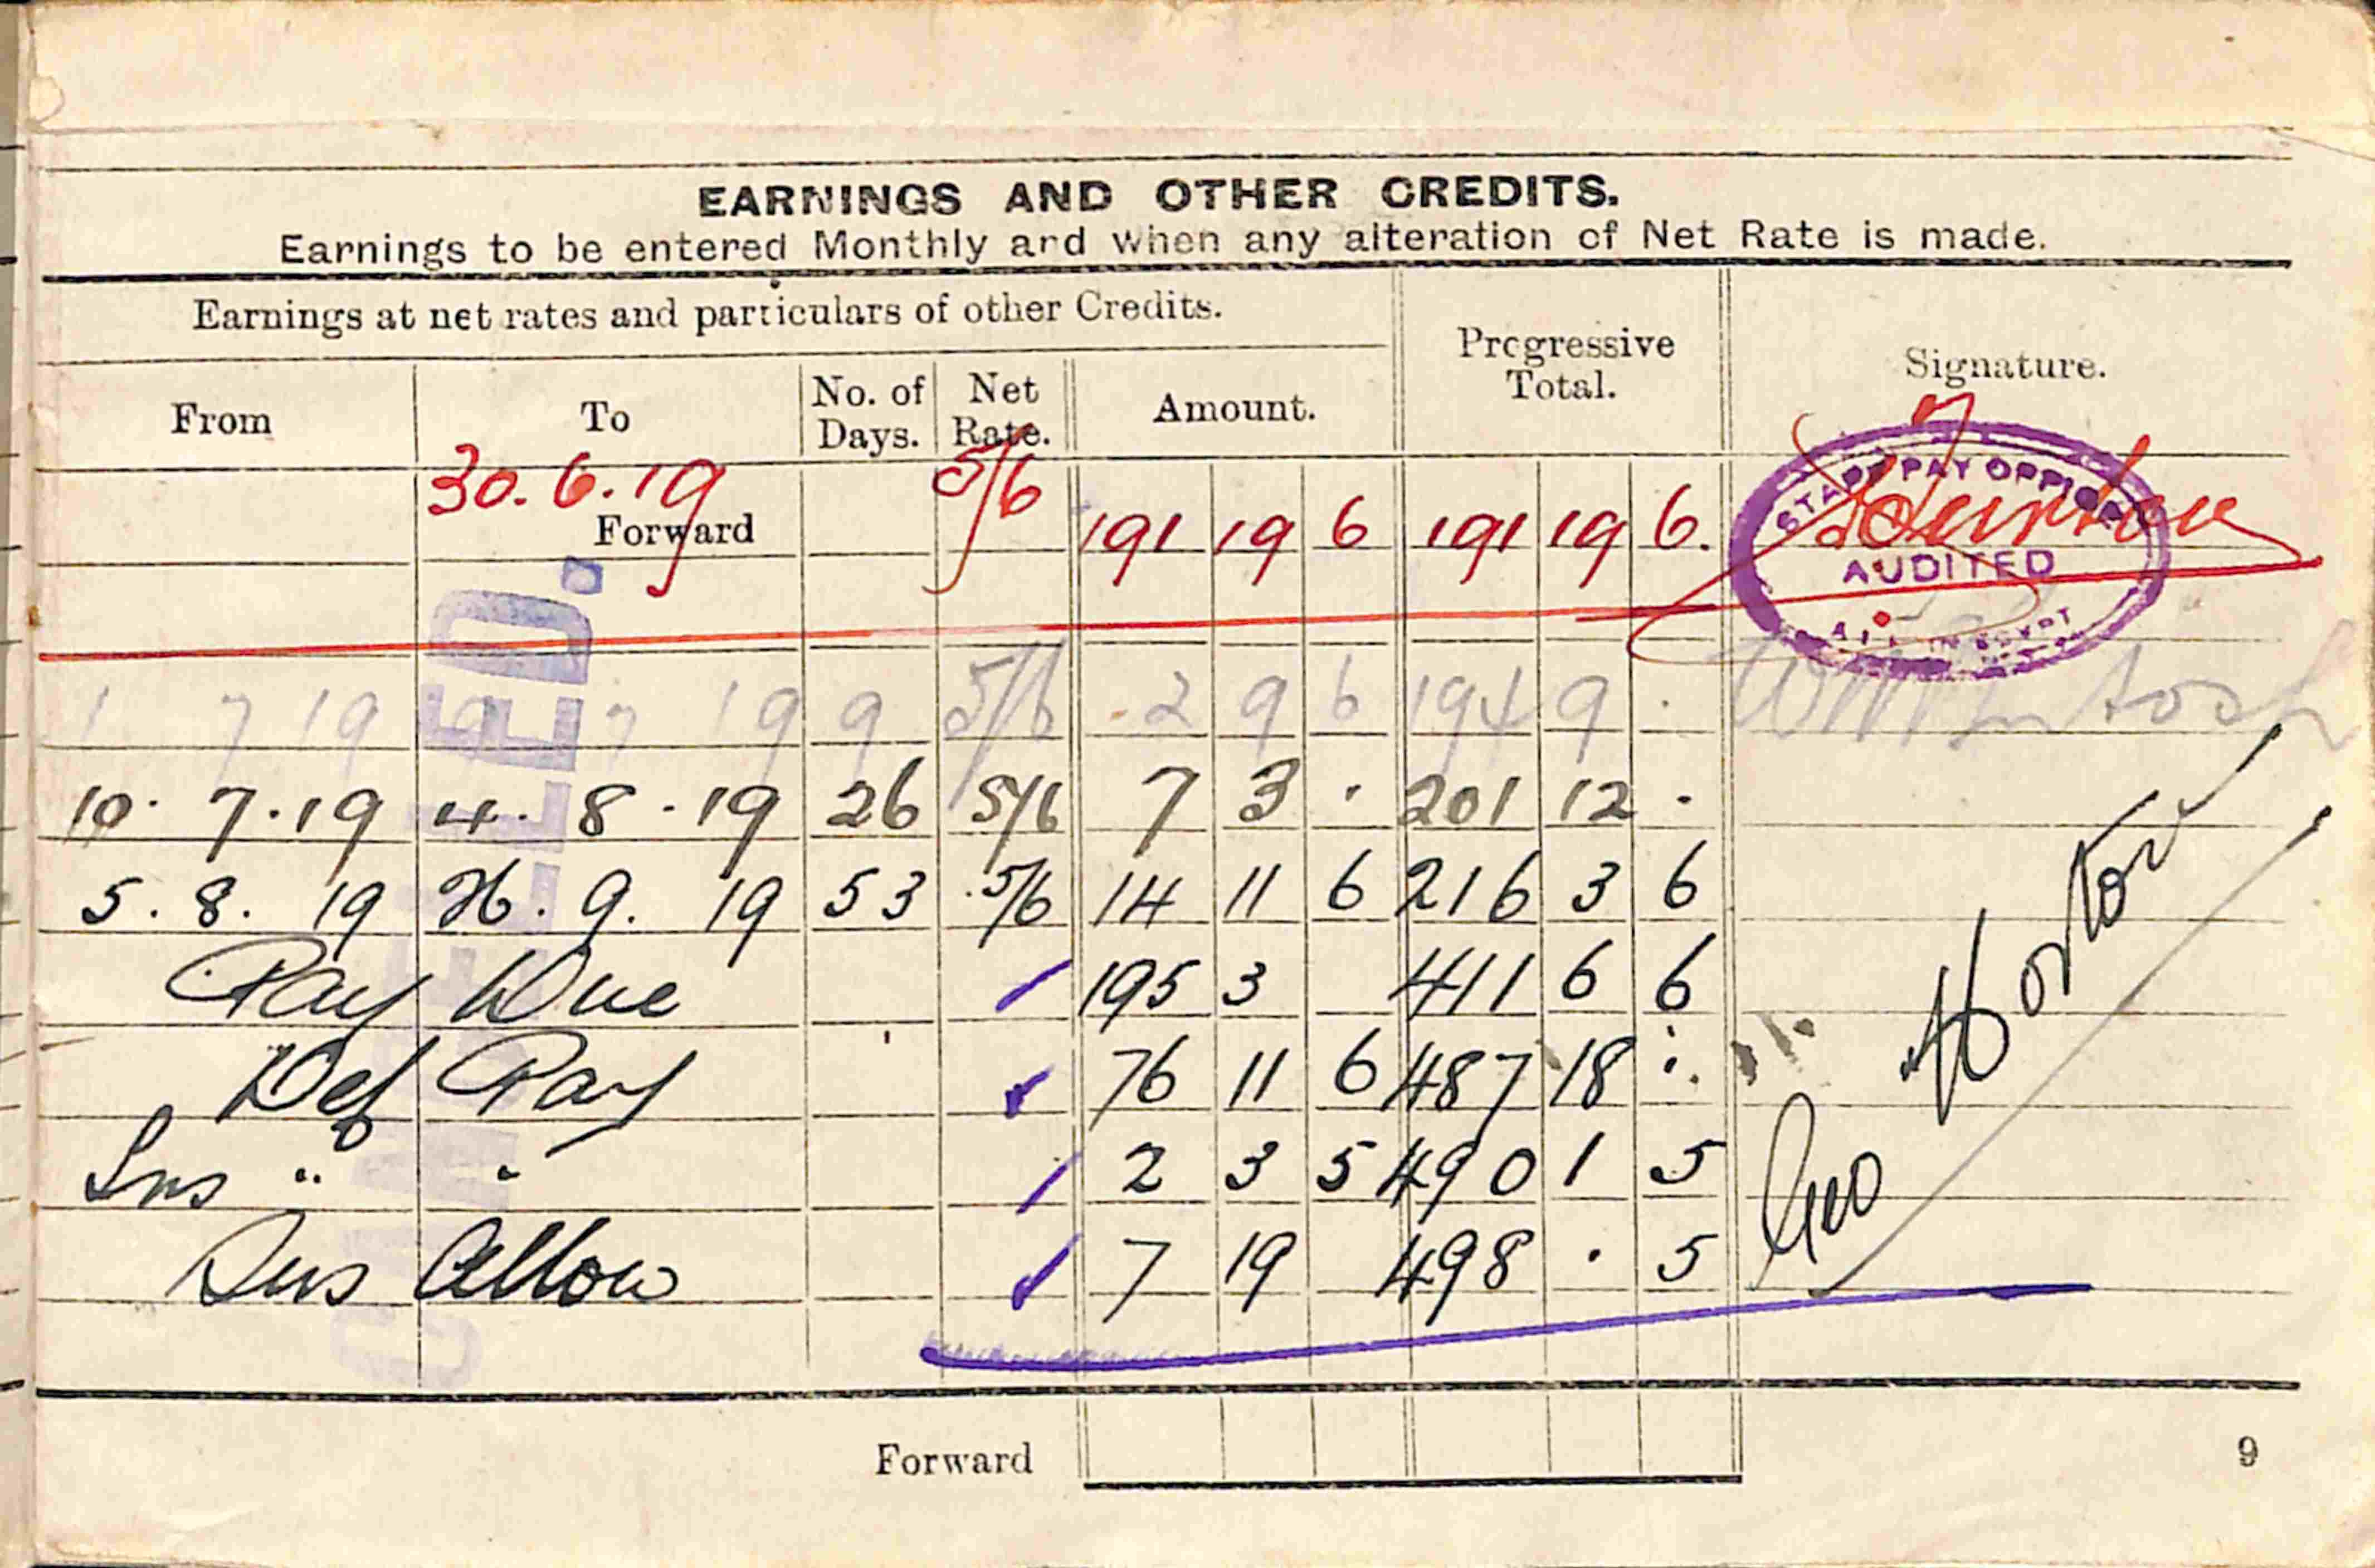 EARNINGS AND OTHER CREDITS.
Earnings to be entered Monthly and when any alteration of Net Rate is made.
Earnings at net rates and particulars of other Credits.
Progressive Total.
Signature.
From To No. of Days. Net Rate. Amount.
30.6.19 Forward 5/6 191 19 6 191 19 6.
STAFF PAY OFFICE
AUDITED
A.I.F. IN EGYPT
1 7 19 9 7 19 9 5/6 2 9 6 194 9 .
10. 7. 19 4. 8. 19 26 5/6 7 3 . 201 12 .
5. 8. 19 26. 9. 19 53 5/6 14 11 6 216 3 6
Pay Due 195 3 411 6 6
Def Pay 76 11 6 487 18 .
Ins " " 2 3 5 490 1 5
Sus Allow 7 19 498 . 5
Geo Horton
CANCELLED.
Forward
9